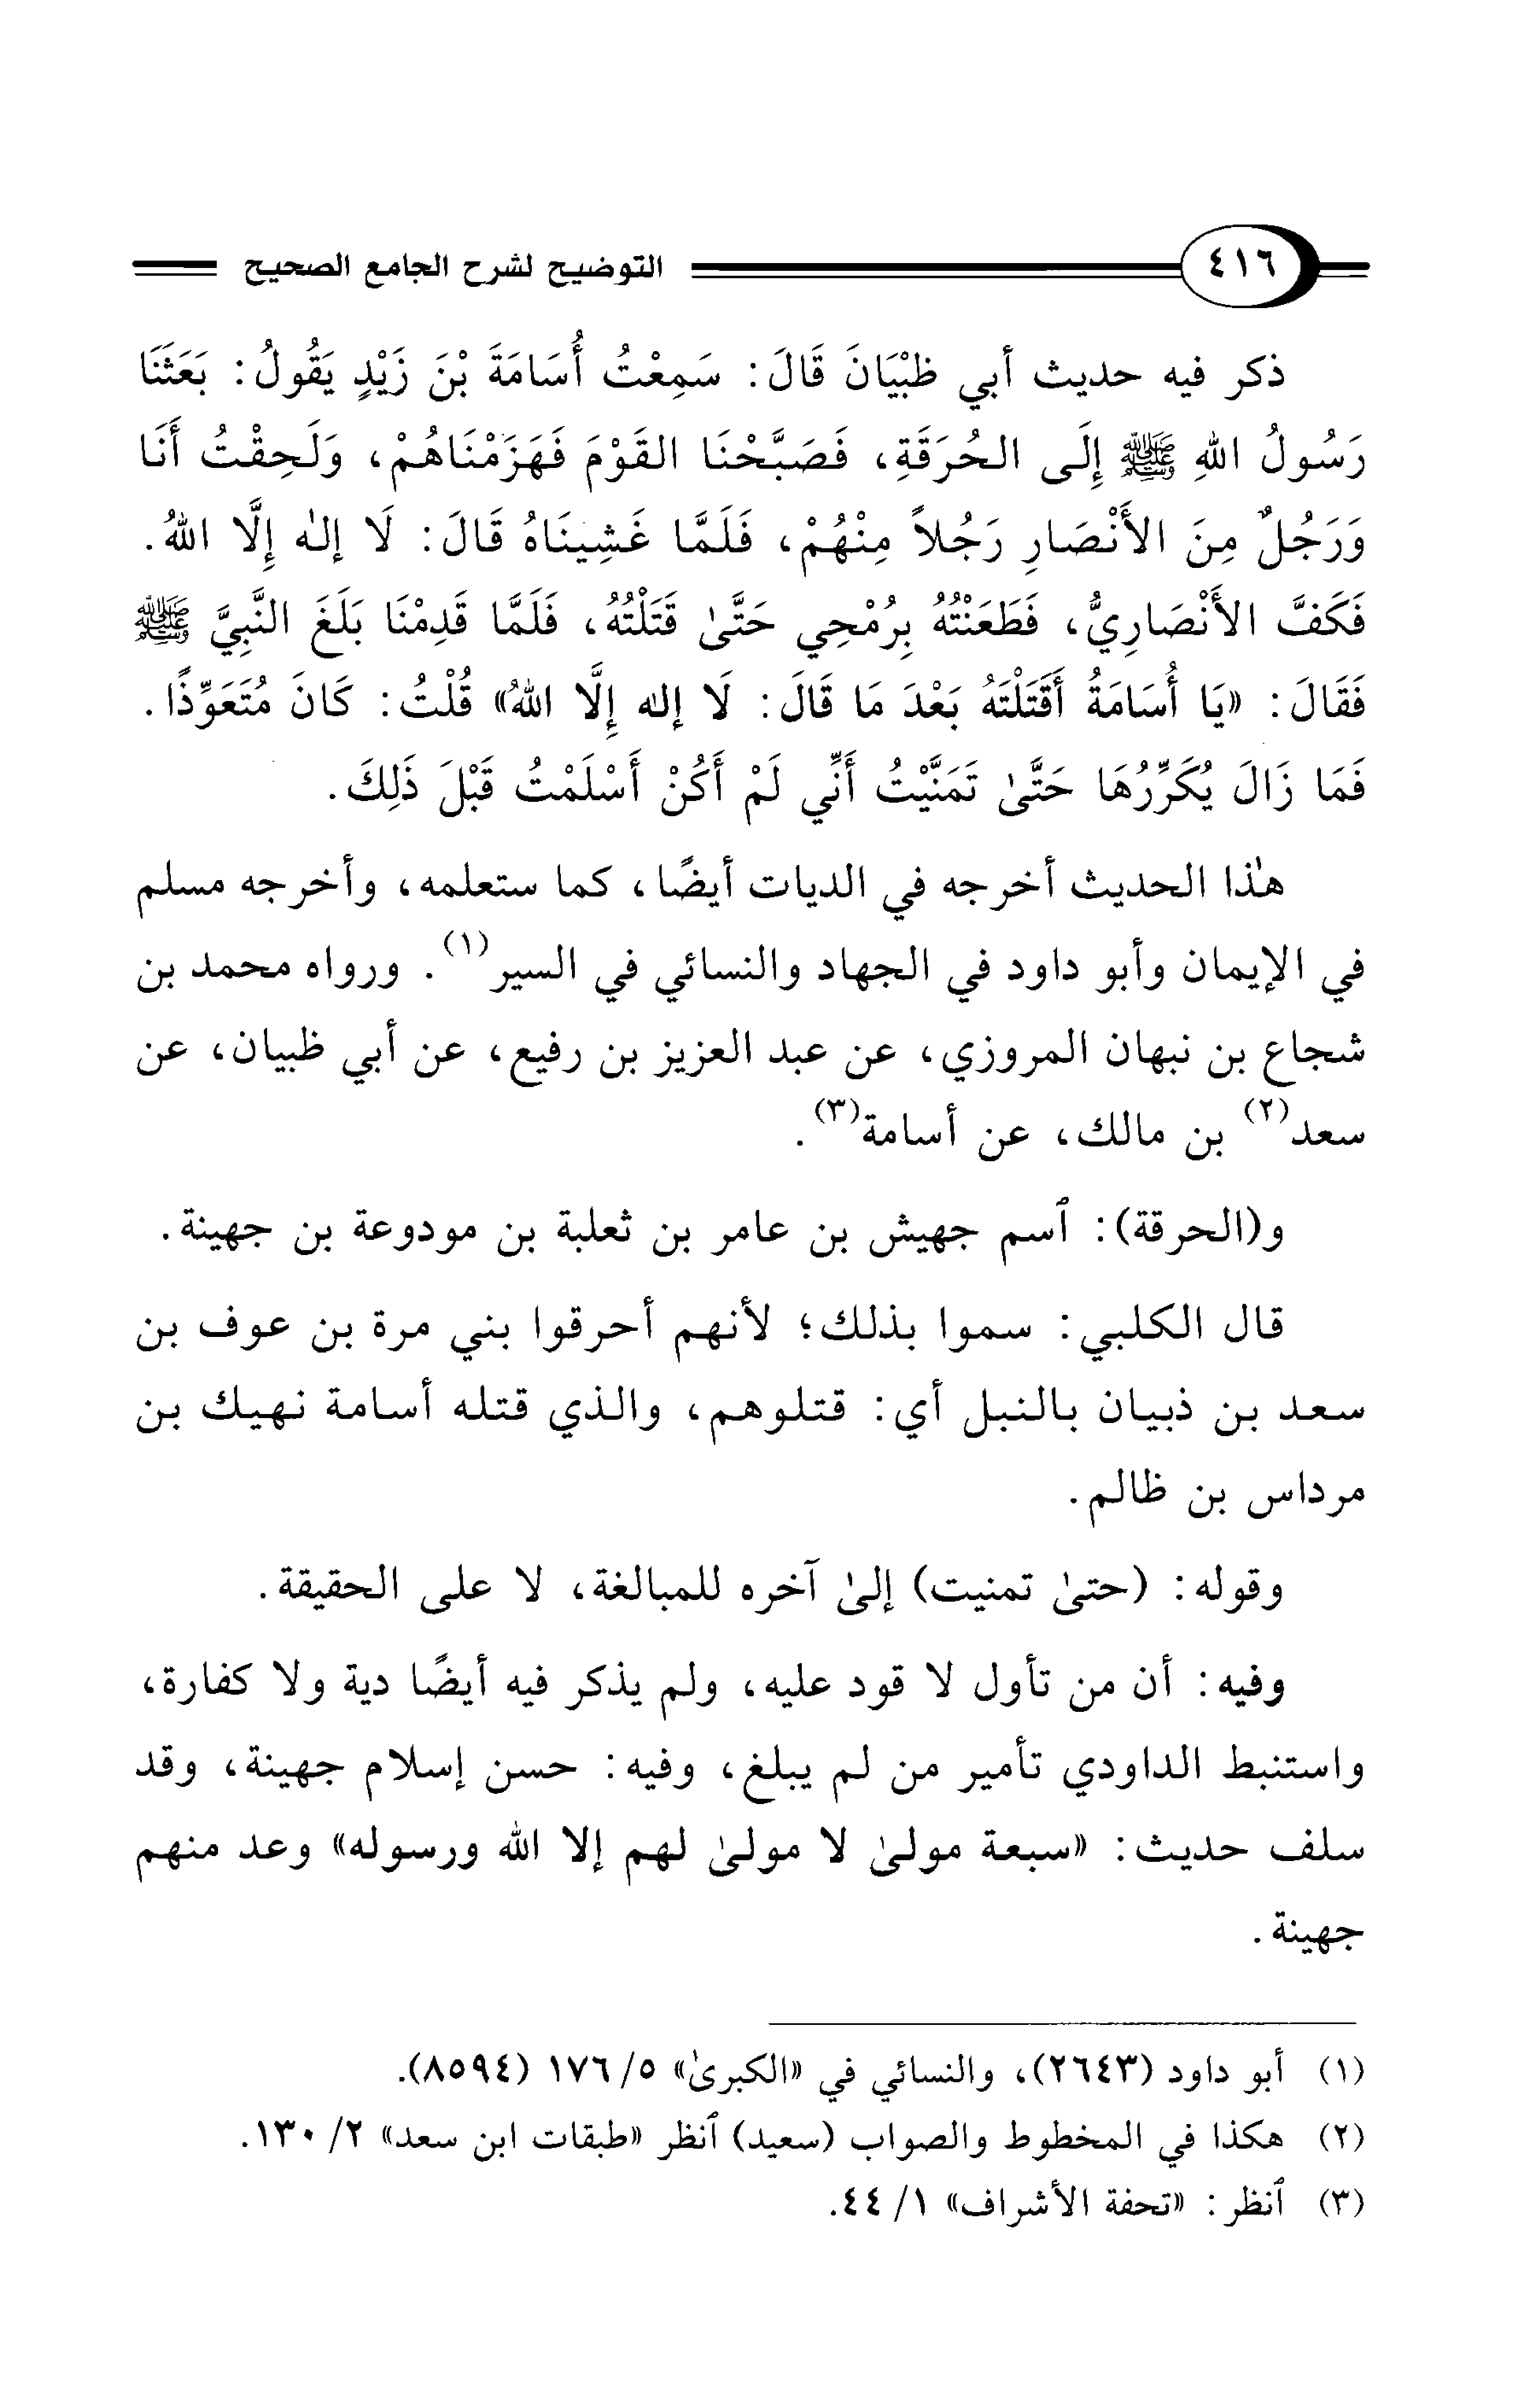 ٤١٦ التوضيح لشرح الجامع الصحيح
ذكر فيه حديث أبي ظَبْيَانَ قَالَ: سَمِعْتُ أُسَامَةَ بْنَ زَيْدٍ يَقُولُ: بَعَثَنَا
رَسُولُ اللهِ ﷺ إِلَى الحُرَقَةِ، فَصَبَّحْنَا القَوْمَ فَهَزَمْنَاهُمْ، وَلَحِقْتُ أَنَا
وَرَجُلٌ مِنَ الأَنْصَارِ رَجُلاً مِنْهُمْ، فَلَمَّا غَشِينَاهُ قَالَ: لَا إلٰه إِلَّا اللهُ.
فَكَفَّ الأَنْصَارِيُّ، فَطَعَنْتُهُ بِرُمْحِي حَتَّىٰ قَتَلْتُهُ، فَلَمَّا قَدِمْنَا بَلَغَ النَّبِيَّ ﷺ
فَقَالَ: «يَا أُسَامَةُ أَقَتَلْتَهُ بَعْدَ مَا قَالَ: لَا إلٰه إِلَّا اللهُ» قُلْتُ: كَانَ مُتَعَوِّذًا.
فَمَا زَالَ يُكَرِّرُهَا حَتَّىٰ تَمَنَّيْتُ أَنِّي لَمْ أَكُنْ أَسْلَمْتُ قَبْلَ ذَلِكَ.
هٰذا الحديث أخرجه في الديات أيضًا، كما ستعلمه، وأخرجه مسلم
في الإيمان وأبو داود في الجهاد والنسائي في السير(١). ورواه محمد بن
شجاع بن نبهان المروزي، عن عبد العزيز بن رفيع، عن أبي ظبيان، عن
سعد(٢) بن مالك، عن أسامة(٣).
و(الحرقة): ٱسم جهيش بن عامر بن ثعلبة بن مودوعة بن جهينة.
قال الكلبي: سموا بذلك؛ لأنهم أحرقوا بني مرة بن عوف بن
سعد بن ذبيان بالنبل أي: قتلوهم، والذي قتله أسامة نهيك بن
مرداس بن ظالم.
وقوله: (حتىٰ تمنيت) إلىٰ آخره للمبالغة، لا على الحقيقة.
وفيه: أن من تأول لا قود عليه، ولم يذكر فيه أيضًا دية ولا كفارة،
واستنبط الداودي تأمير من لم يبلغ، وفيه: حسن إسلام جهينة، وقد
سلف حديث: «سبعة مولىٰ لا مولىٰ لهم إلا الله ورسوله» وعد منهم
جهينة.
(١) أبو داود (٢٦٤٣)، والنسائي في «الكبرىٰ» ٥/ ١٧٦ (٨٥٩٤).
(٢) هكذا في المخطوط والصواب (سعيد) ٱنظر «طبقات ابن سعد» ٢/ ١٣٠.
(٣) ٱنظر: «تحفة الأشراف» ١/ ٤٤.